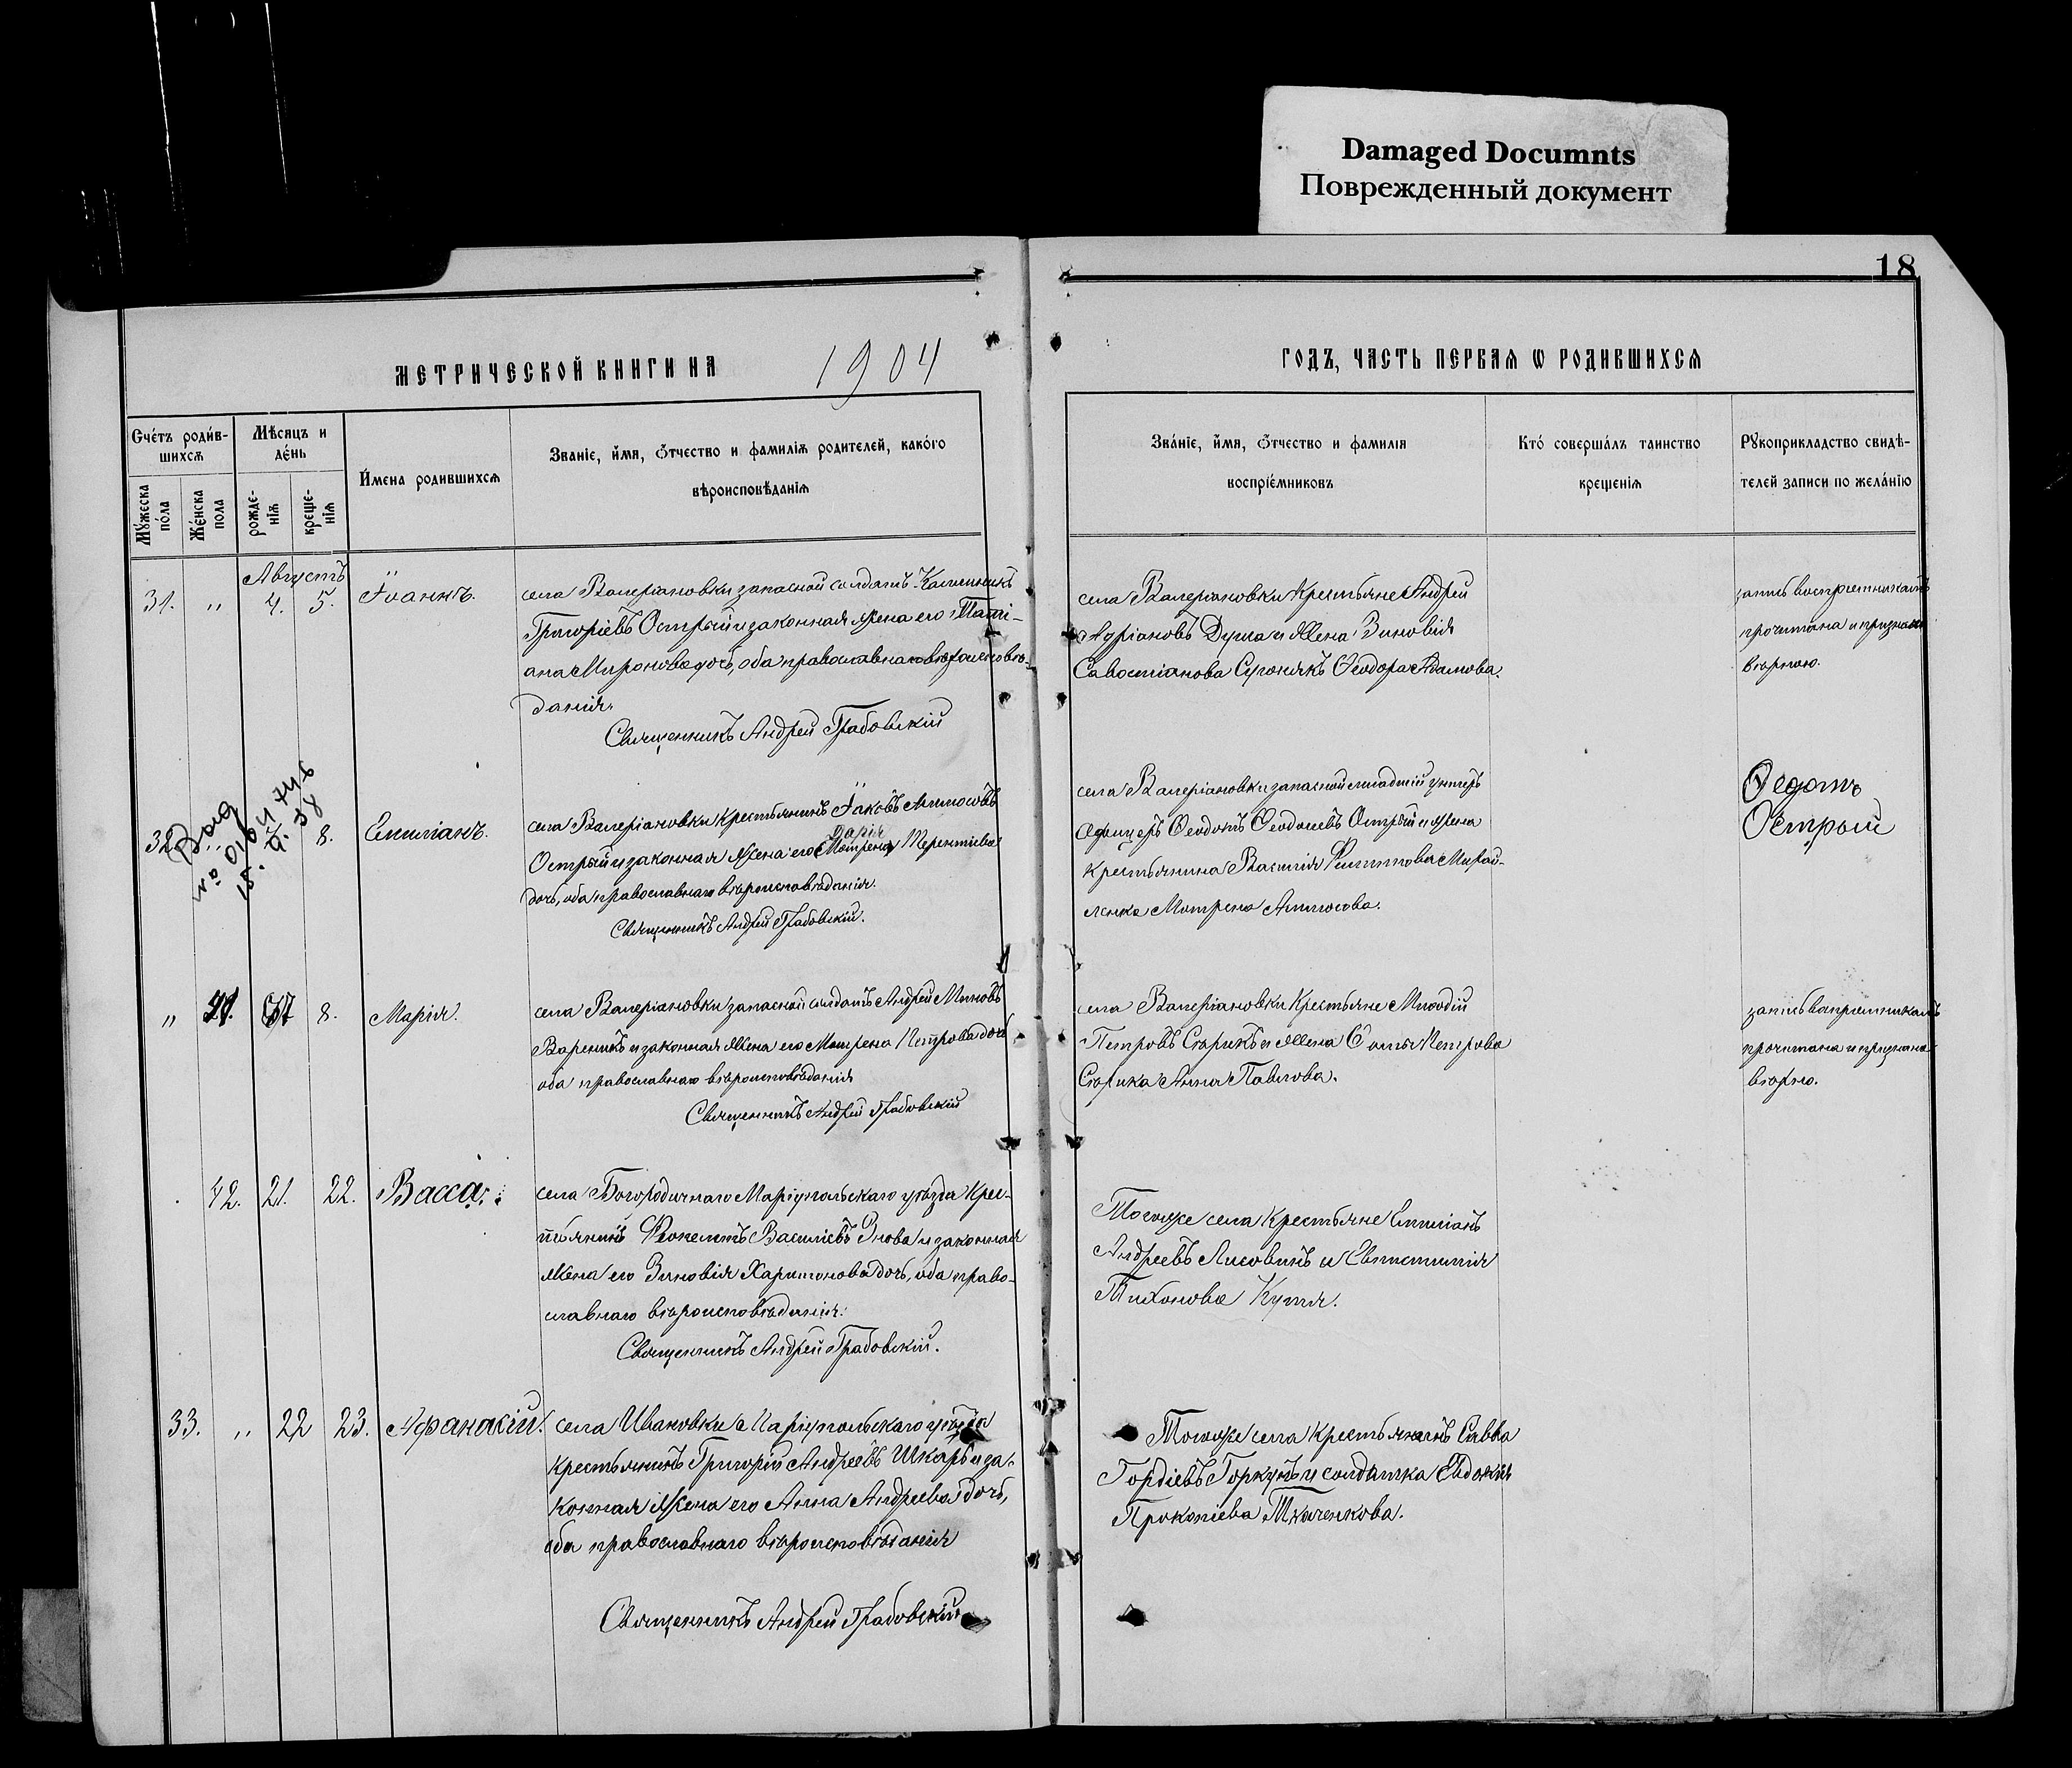 Damaged Documnts
Поврежденный документ
18
МЕТРИЧЕСКОЙ КНИГИ НА 1904
ГОДЪ, ЧАСТЬ ПЕРВАѦ Ѡ РОДИВШИХСѦ
Счéтъ родив-
шихсѧ
Мѣсѧцъ и
дéнь
Мꙋжеска
пóла
Жéнска
пола
рожде-
нїѧ
креще-
нїѧ
Имена родившихсѧ
Званіе, имя, ѿчество и фамилїѧ родителей, какóго
вѣроисповѣданїѧ
Звáнїе, имя, ѿчество и фамилїя
воспрїéмниковъ
Ктó совершáлъ таинство
крещенїѧ
Рꙋкоприкладство свидѣ-
телей записи по желáнїю
Августъ
31. „ 4. 5. Іоаннъ.
села Валеріановки запасной солдатъ Каленикъ
Григоріевъ Острый и законная жена его Таті-
ана Миронова дочь, оба православнаго вѣроисповѣ-
данія.
Священникъ Андрей Грабовскій
села Валеріановки Крестьяне Андрей
Адріановъ Душа и жена Зиновія
Савостіанова Ѳеодора Адамова.
запись воспріемникамъ
прочитана и признана
вѣрною.
32 „ 8. Емиліанъ.
села Валеріановки крестьянинъ Іаковъ Аммосовъ
Дарія
Острый и законная жена его Мотрена Терентіева
дочь, оба православнаго вѣроисповѣданія.
Священникъ Андрей Грабовскій.
села Валеріановки запасной младшій унтеръ
офицеръ Ѳеодотъ Ѳеодосіевъ Острый и жена
крестьянина Василія Филиппова Михай-
ленка Мотрена Аммосова.
Ѳедотъ
Острый
„ 41. 7 8. Марія.
села Валеріановки запасной солдатъ Андрей Миновъ
Вареникъ и законная жена его Мотрена Петрова дочь
оба православнаго вѣроисповѣданія
Священникъ Андрей Грабовскій
села Валеріановки Крестьяне Миѳодій
Петровъ Старикъ и жена Ѳомы Петрова
Старика Анна Павлова.
запись воспріемникамъ
прочитана и признана
вѣрно.
42. 21. 22. Васса.
села Богородичнаго Маріупольскаго уѣзда Крес-
тьянинъ Василіевъ Знова и законная
жена его Зиновія Харитонова дочь, оба право-
славнаго вѣроисповѣданія.
Священникъ Андрей Грабовскій.
Тогоже села Крестьяне Емиліанъ
Андреевъ Лисовинъ и Евтистимія
Тихонова Кутя.
33. „ 22 23. Афанасій.
села Ивановки Маріупольскаго уѣзда
Крестьянинъ Григорій Андреевъ Шкарб и за-
конная жена его Анна Андреева дочь,
оба православнаго вѣроисповѣданія
Священникъ Андрей Грабовскій
Тогоже села Крестьянинъ Савва
Гордіевъ Горкунъ и солдатка Евдокія
Прокопіева Ткаченкова.